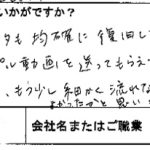 いかがですか?
タも均確に復旧し
プル動画を送ってもらえ
、もう少し細かく流れな
よかったかと思い
会社名またはご職業